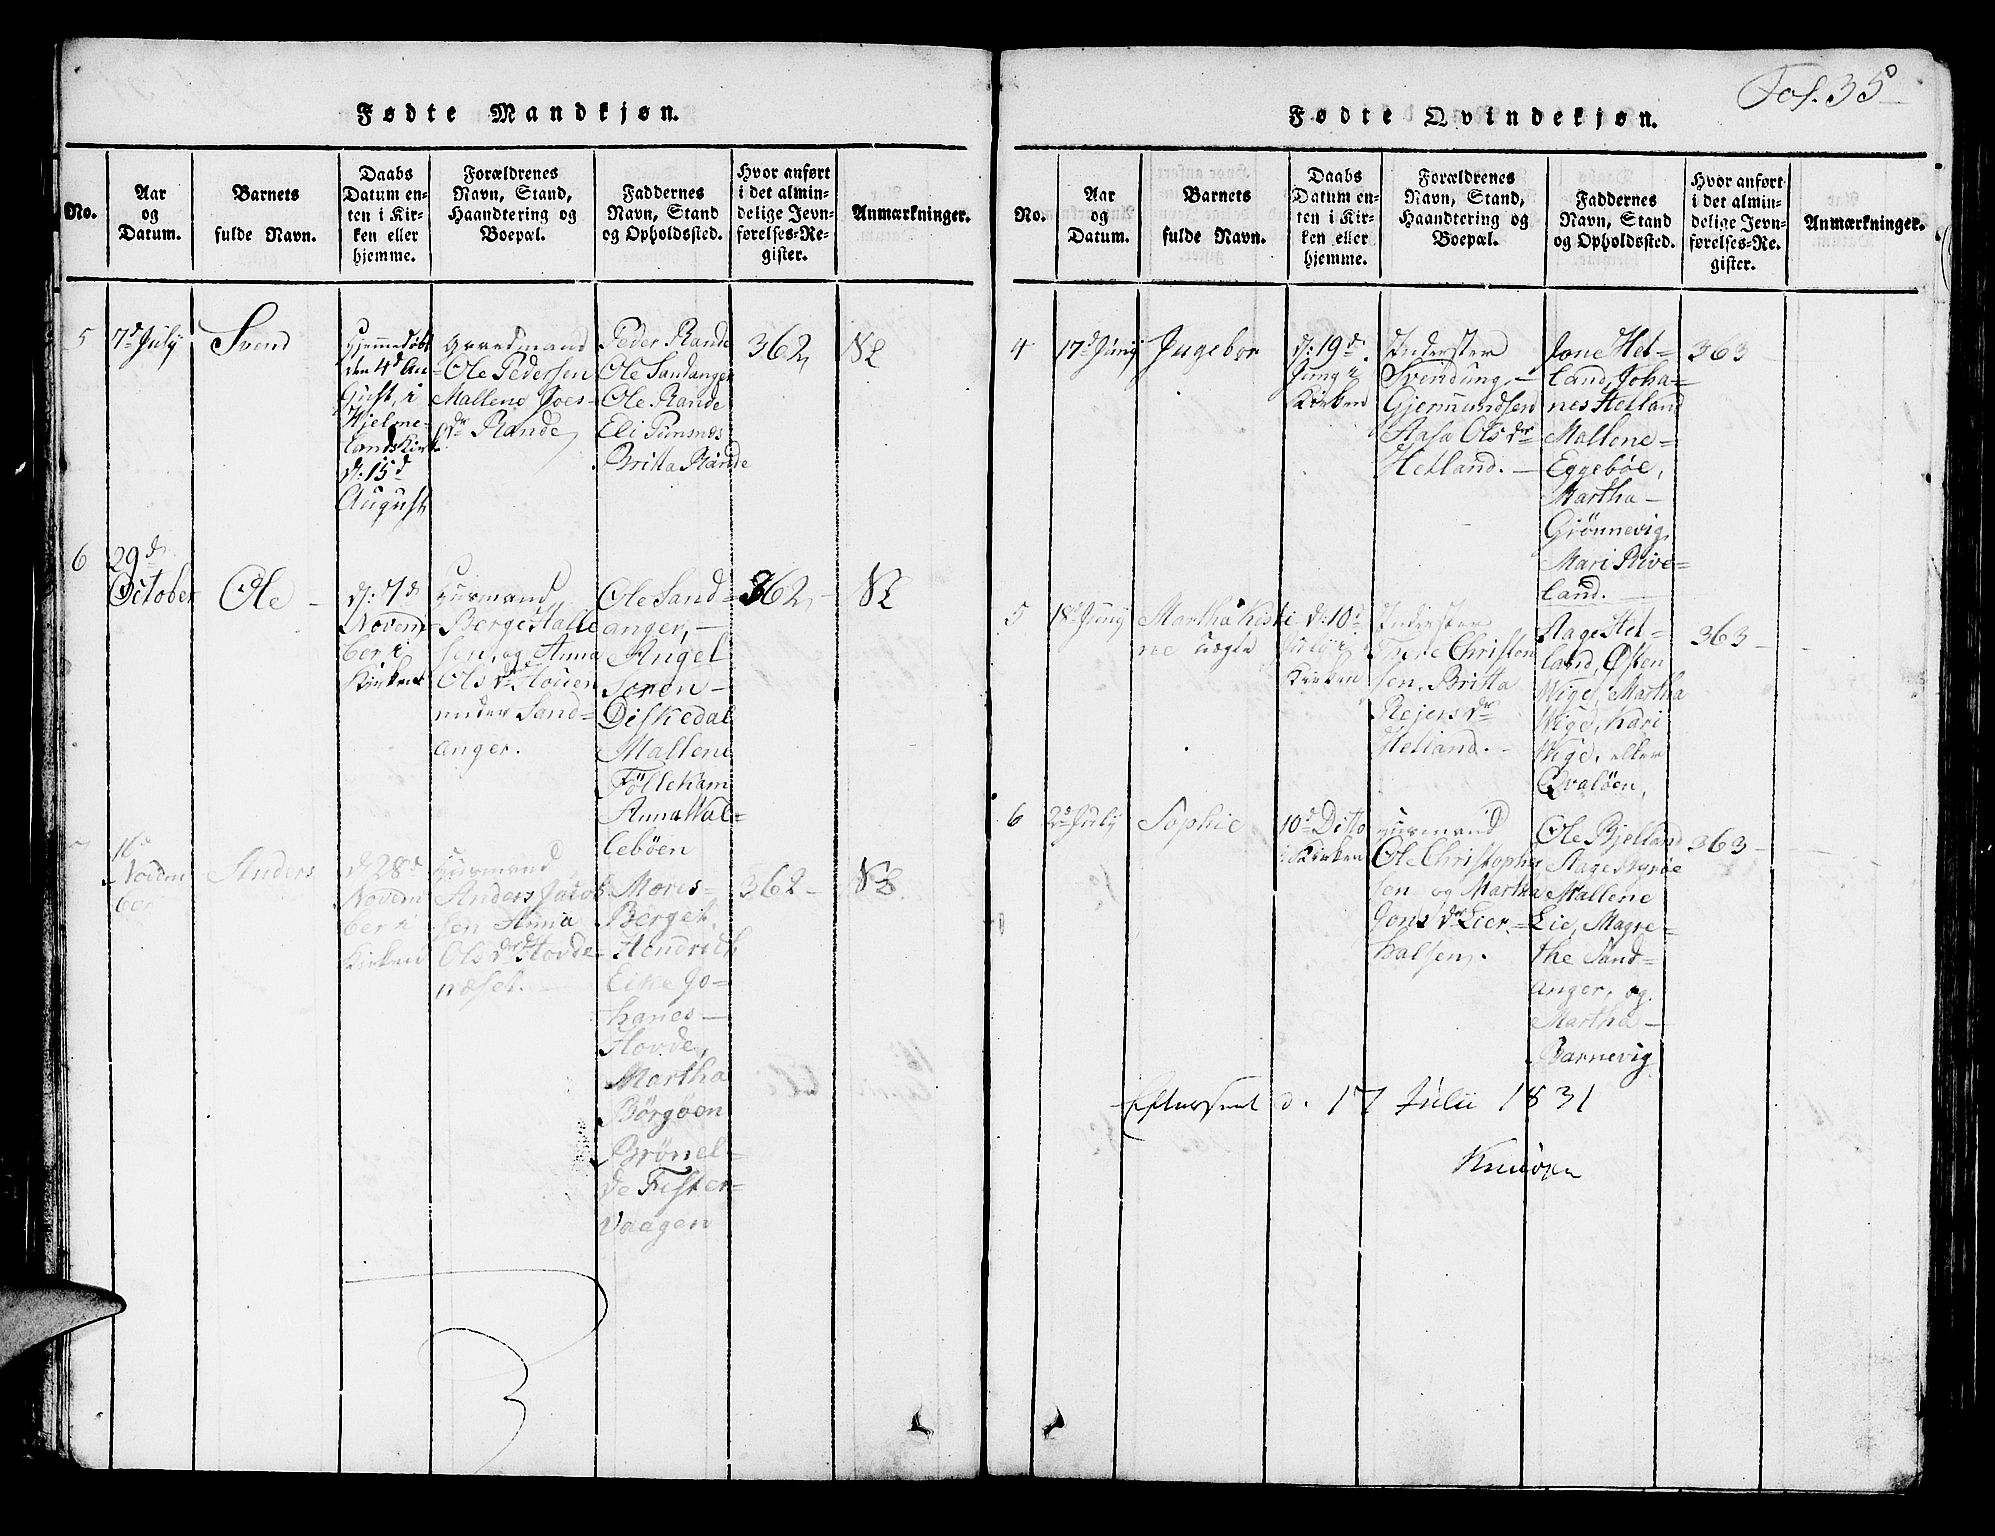 Fol. 35
Fødte Mandkjøn.
No.
Aar
og
Datum.
Barnets
fulde Navn.
Daabs
Datum en-
ten i Kir-
ken eller
hjemme.
Forældrenes
Navn, Stand,
Haandtering og
Boepæl.
Faddernes
Navn, Stand
og Opholdssted.
Hvor anført
i det almin-
delige Jevn-
førelses-Re-
gister.
Anmærkninger.
5
7d July
Svend
Hjemmedøbt
den 4d Au-
gust, i
Hjelme-
lands Kirk
d: 15d
August
Gaardmand
Ole Pedersen
Mallene Joes-
dr Rande
Peder Rande
Ole Sandanger
Ole Rande
Eli Punsnes
Britta Rande
362
6
29d
October
Ole
d: 7d
Novem-
ber i
Kirken
Huusmand
Berge Halle
sen, og Anna
Ols dr Houen
under Sand=
anger.
Ole Sand=
anger,
Angel
Soren
Diskedal
Mallene
Tølleham
Anna Wal=
lebøen
362
7
16d
Novem
ber
Anders
d 28d
Novem
ber i
Kirken
Huusmand
Anders Jacob
sen Anna
Ols dr Hovde=
næset.
Mores=
Berget,
Hendrich
Eike Jo=
hanes
Hovde,
Martha
Børgøen
Brønel=
de Fister=
Vaagen
362
Fødte Qvindekjøn.
No.
Aar
og
Datum.
Barnets
fulde Navn.
Daabs
Datum en-
ten i Kir-
ken eller
hjemme.
Forældrenes
Navn, Stand,
Haandtering og
Boepæl.
Faddernes
Navn, Stand
og Opholdssted.
Hvor anført
i det almin-
delige Jevn-
førelses-Re-
gister.
Anmærkninger.
4
17d Juny
Ingebor
d: 19d
Juny i
Kirken
Inderster
Svendung
Gjermundsen
Aasa Ols dr
Hetland.
Jone Het=
land, Joha=
nes Hetland
Mallene=
Eggebøe,
Martha
Grønnevig,
Mari Rive=
land.
363
5
18d Juny
Martha Kisti
ne
d: 10d
July i
Kirken
Inderster
Christen
sen, Britta
Rejers dr
Hetland.
Aage Het=
land, Østen
Wige, Martha
Wige, Kari
Wige,
Qvaløen,
363
6
2d July
Sophie
10d Ditto
i Kirken
Huusmand
Ole Christophe
sen og Martha
Jons dr Lier=
halsen.
Ole Bjelland
Aage Nyrøe
Mallene
Lie, Magre=
the Sand=
anger, og
Martha
Barnevig
363
Efterseet d. 17 Julii 1831